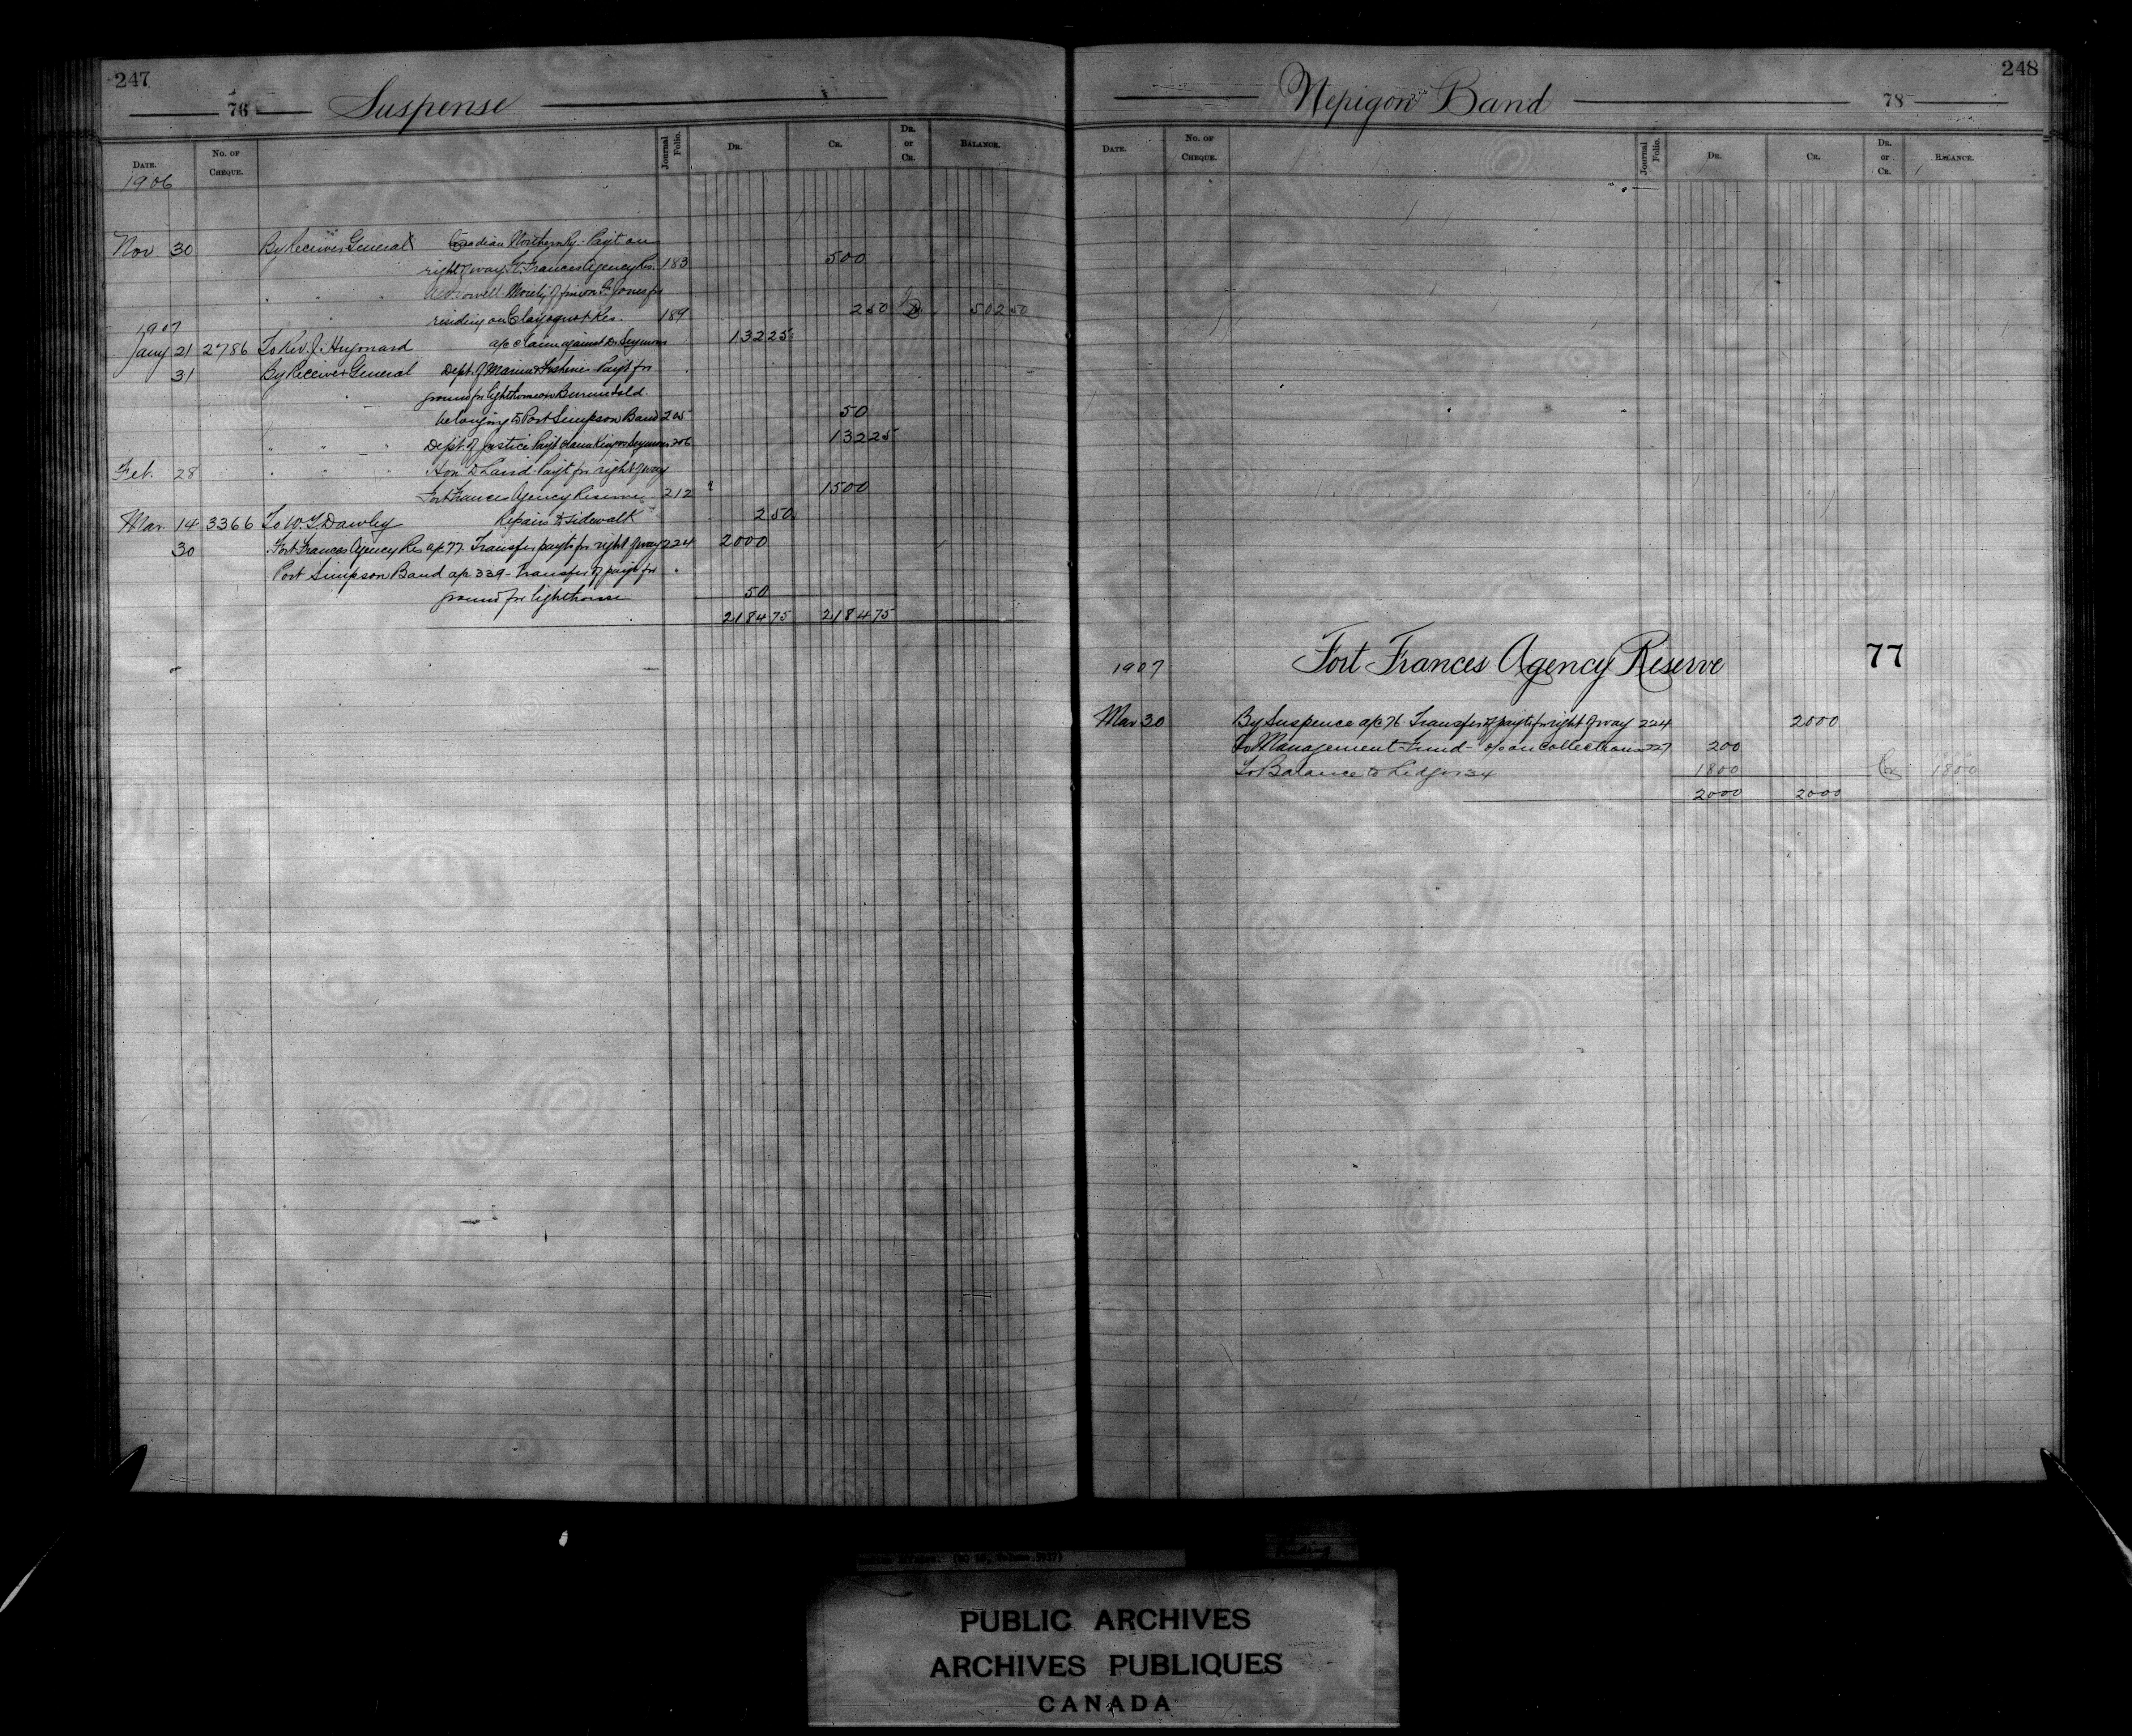 247
76 Suspense
DATE. No. OF CHEQUE. Journal Folio. DR. CR. DR. or CR. BALANCE.
1906
Nov. 30 By Receiver General Canadian Northern Ry. Payt on
right of way Ft. Frances Agency Res. 183 500
" " " Moiety of fine on F. Jones for
residing on Clayoquot Res. 189 2 50 Cr. 502 50
1907
Jany 21 2786 To Rev. J. Hugonard a/c claim against Dr Seymour 132 25
31 By Receiver General Dept. of Marine & Fisheries Payt for
ground for lighthouse on Isld.
belonging to Port Simpson Band 205 50
" " " Dept. of Justice Payt Seymour 206 132 25
Feb. 28 " " " Hon. D. Laird. Payt for right of way
Fort Frances Agency Reserve 212 1500
Mar. 14 3366 To W. T. Dawley Repairs to sidewalk 2 50
30 Fort Frances Agency Res a/c 77. Transfer payts for right of way 224 2000
Port Simpson Band a/c 339 - Transfer of payt for
ground for lighthouse 50
2184 75 2184 75
248
Nepigon Band 78
DATE. No. OF CHEQUE. Journal Folio. DR. CR. DR. or CR. BALANCE.
1907 Fort Frances Agency Reserve 77
Mar 30 By Suspence a/c 76. Transfer of payts for right of way 224 2000
To Management Fund - % on collections 227 200
To Balance to Ledger 34 1800 Cr 1800
2000 2000
Indian Affairs. (RG 10, Volume 5937)
PUBLIC ARCHIVES
ARCHIVES PUBLIQUES
CANADA